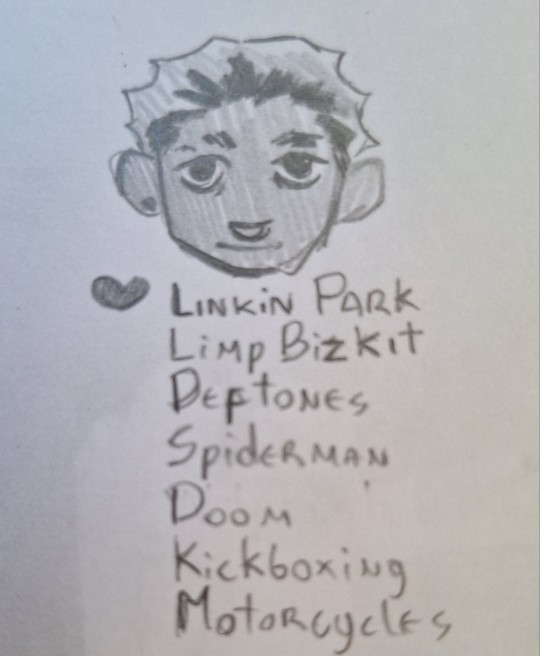 Linkin Park
Limp Bizkit
Deftones
Spiderman
Doom
Kickboxing
Motorcycles